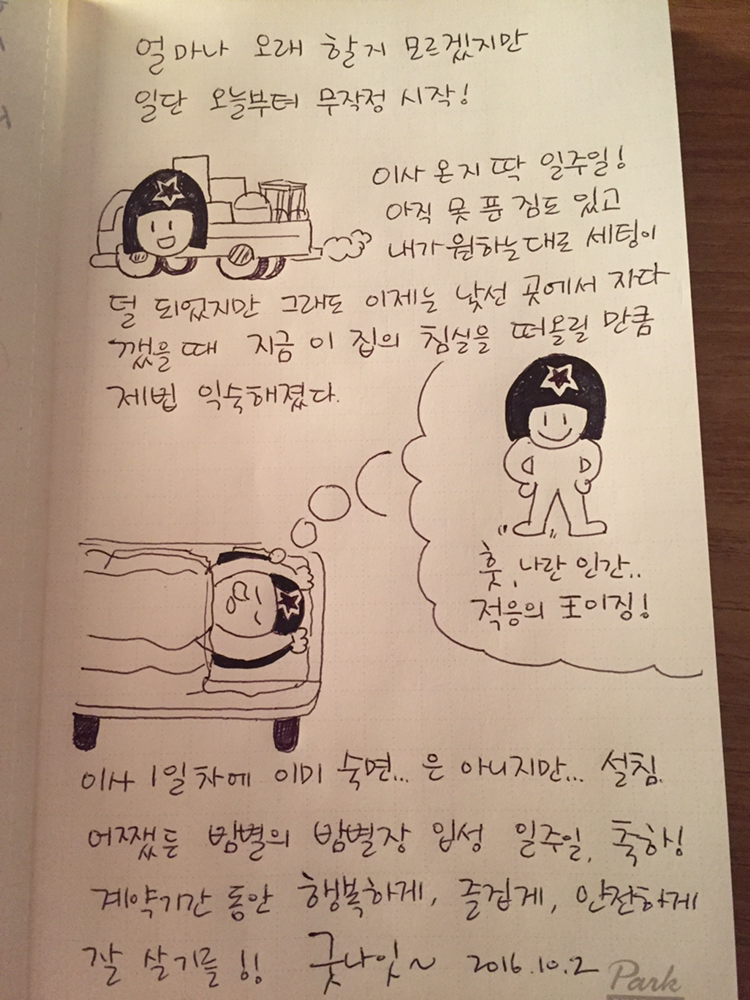 얼마나 오래 할지 모르겠지만
일단 오늘부터 무작정 시작!
이사 온지 딱 일주일!
아직 못 푼 짐도 있고
내가 원하는대로 세팅이
덜 되었지만 그래도 이제는 낯선 곳에서 자다
깼을 때 지금 이 집의 침실을 떠올릴 만큼
제법 익숙해졌다.
훗, 나란 인간..
적응의 王이징!
이사 1일차에 이미 숙면... 은 아니지만... 설침.
어쨌든 밤별의 밤별장 입성 일주일, 축하!
계약기간 동안 행복하게, 즐겁게, 안전하게
잘 살기를!! 굿나잇~ 2016.10.2
Park